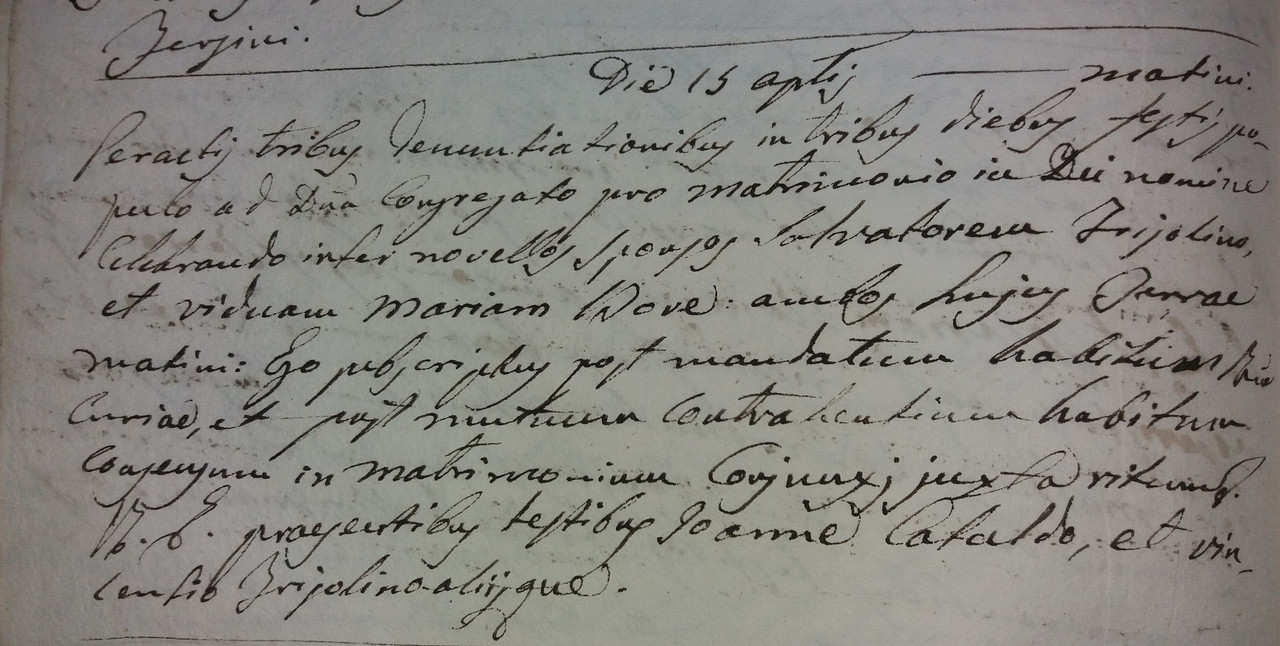 Zersini.
Die 15 aplis — matini.
Peractis tribus denuntiationibus in tribus diebus festis po-
pulo ad Dna Congregato pro matrimonio in Dei nomine
Celebrando inter novellos sponsos Salvatorem Frisolino,
et viduam Mariam Dove: ambos hujus Terrae
matini: Ego subscriptus post mandatum habitum Rdae
Curiae, et post mutuum Contrahentium habitum
Consensum in matrimonium Conjunxi juxta ritum S.
R. E. praesentibus testibus Joanne Cataldo, et vin-
centio Frisolino aliisque.